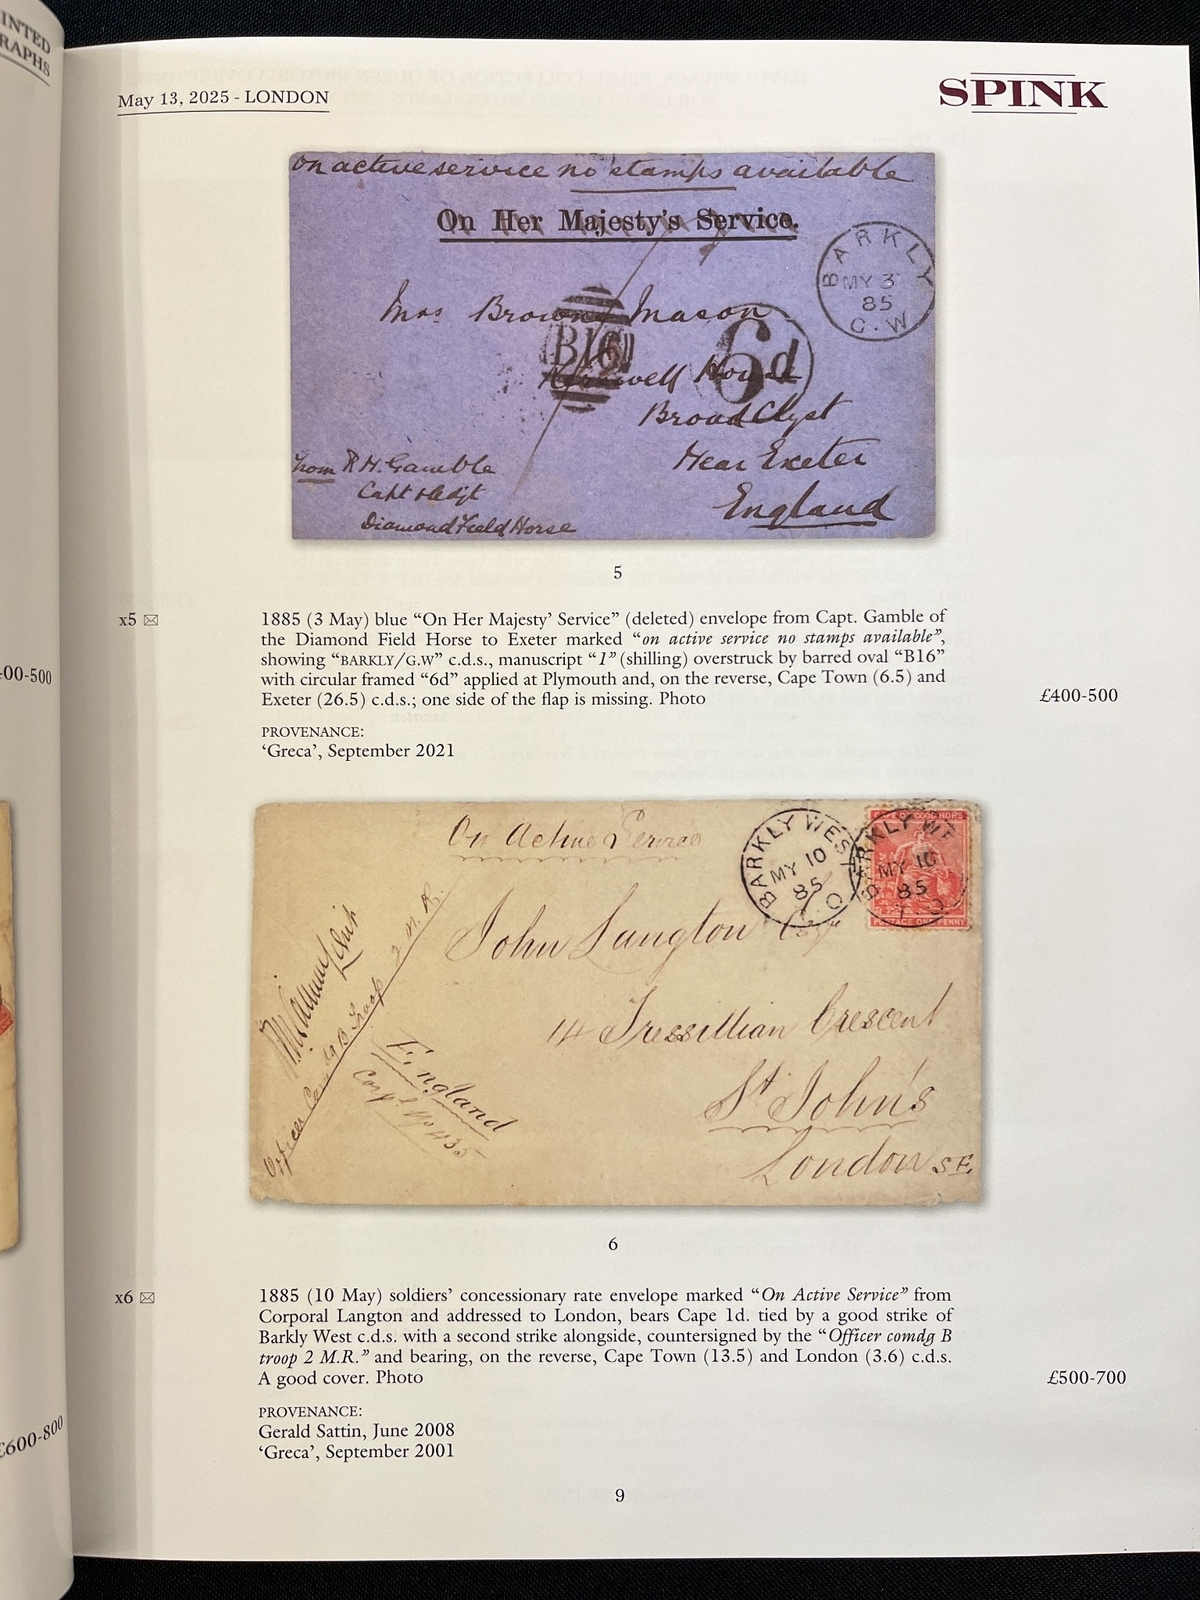 INTED
RAPHS
00-500
£600-800
May 13, 2025 - LONDON
SPINK
on active service no stamps available
On Her Majesty's Service.
BARKLY
MY 3
85
G.W
Mrs Brown Mason
B16
6d
House
Broad Clyst
Near Exeter
England
From R.H. Gamble
Capt & Adjt
Diamond Field Horse
5
x5
1885 (3 May) blue “On Her Majesty’ Service” (deleted) envelope from Capt. Gamble of
the Diamond Field Horse to Exeter marked “on active service no stamps available”,
showing “BARKLY/G.W” c.d.s., manuscript “1” (shilling) overstruck by barred oval “B16”
with circular framed “6d” applied at Plymouth and, on the reverse, Cape Town (6.5) and
Exeter (26.5) c.d.s.; one side of the flap is missing. Photo
£400-500
PROVENANCE:
‘Greca’, September 2021
On Active Service
BARKLY WEST
MY 10
85
CAPE OF GOOD HOPE
BARKLY WE
MY 10
85
POSTAGE ONE PENNY
John Langton
14 Tressillian Crescent
St John's
London S.E.
England
Corpl No 435
Officer Comdg B Troop 2 M.R.
6
x6
1885 (10 May) soldiers’ concessionary rate envelope marked “On Active Service” from
Corporal Langton and addressed to London, bears Cape 1d. tied by a good strike of
Barkly West c.d.s. with a second strike alongside, countersigned by the “Officer comdg B
troop 2 M.R.” and bearing, on the reverse, Cape Town (13.5) and London (3.6) c.d.s.
A good cover. Photo
£500-700
PROVENANCE:
Gerald Sattin, June 2008
‘Greca’, September 2001
9